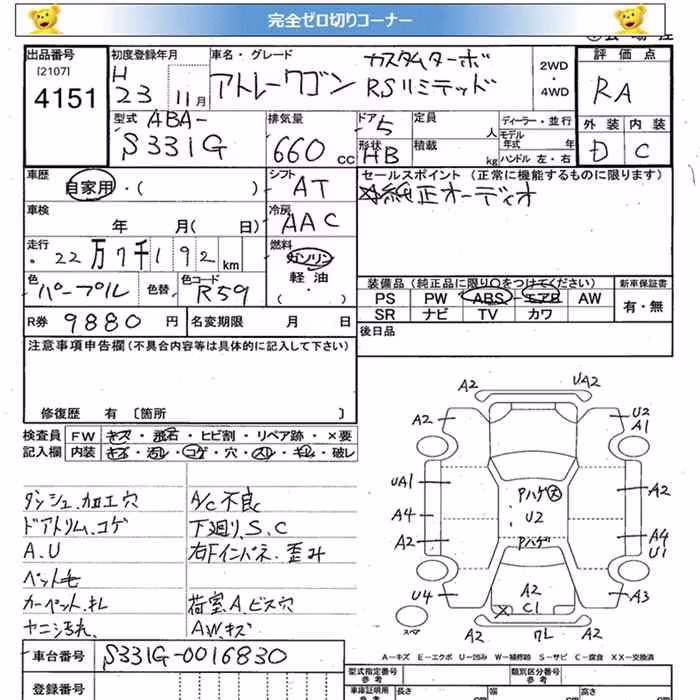 完全ゼロ切りコーナー
出品番号
[2107]
4151
初度登録年月
H
23 11月
車名・グレード
カスタムターボ
アトレーワゴン RSリミテッド
2WD
・
4WD
評価点
RA
型式 ABA-
S331G
排気量
660 cc
ドア 5
形状 HB
定員 人
積載 kg
ディーラー・並行
モデル
年式 年
ハンドル 左・右
外装 内装
D C
車歴
自家用・( )
シフト
AT
セールスポイント(正常に機能するものに限ります)
純正オーディオ
車検
年 月( 日)
冷房
AAC
走行
22万7千192 km
燃料
ガソリン
軽油
( ・ )
色
パープル
色替
色コード
R59
装備品(純正品に限り○をつけてください)
新車保証書
PS PW ABS エアB AW
SR ナビ TV カワ
有・無
R券 9880 円
名変期限 月 日
後日品
注意事項申告欄(不具合内容等は具体的に記入して下さい)
修復歴 有 〔箇所 〕
検査員
記入欄
FW キズ・飛石・ヒビ割・リペア跡・×要
内装 キズ・汚レ・コゲ・穴・スレ・キレ・破レ
ダッシュ.加工穴
ドアトリム.コゲ
A.U
ペット毛
カーペット.キレ
ヤニ汚れ.
A/C不良
下廻り.S.C
右Fインパネ.歪み
荷室A.ビス穴
AW.キズ
A2 UA2
A2 U2
A1
UA1 A2
Pハゲ大
A4 U2 A4
A2 U1
Pハゲ
U4 A2 A3
C1
スペア
ワレ A2
A-キズ E-エクボ U-凹み W-補修跡 S-サビ C-腐食 XX-交換済
車台番号 S331G-0016830
登録番号
型式指定番号
参考
類別区分番号
参考
車庫証明用
参考
長さ cm
幅 cm
高さ cm